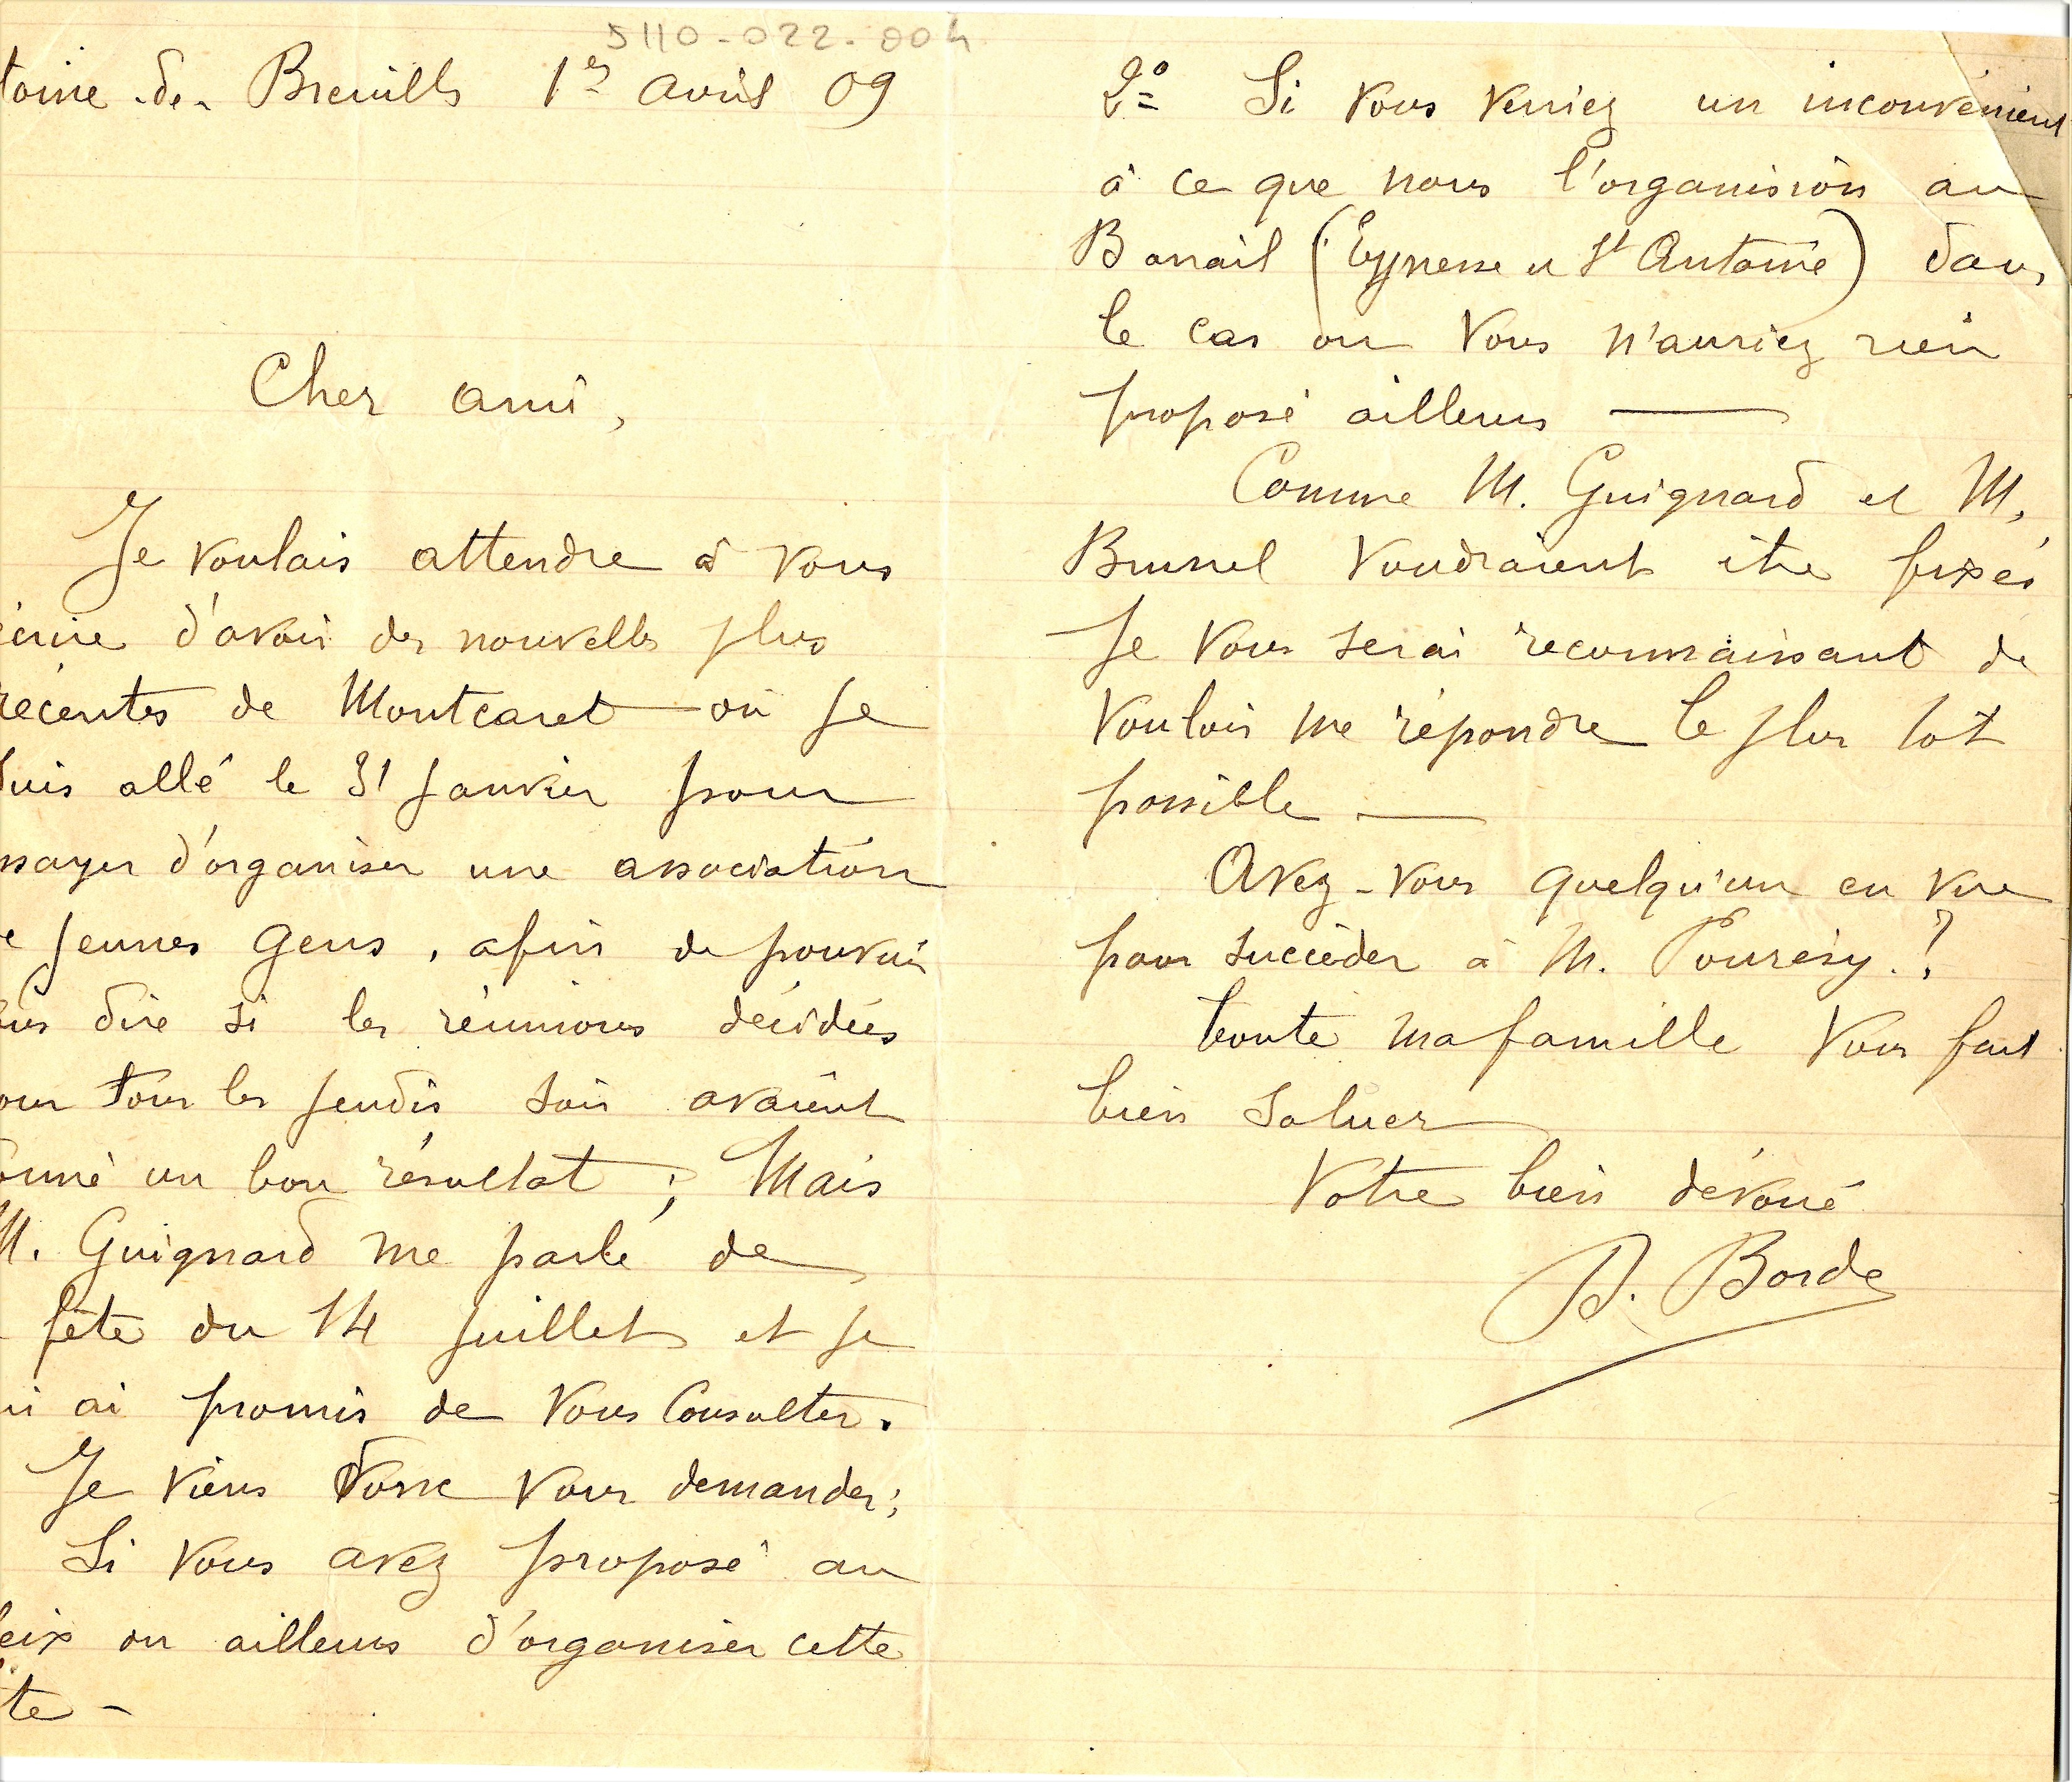 5110-022-004
toine-de-Breuilh 1er avril 09
Cher ami,
Je voulais attendre à vous
écrire d'avoir des nouvelles plus
récentes de Montcaret où je
suis allé le 31 janvier pour
ssayer d'organiser une association
e jeunes gens, afin de pouvoir
ous dire si les réunions décidées
our tous les jeudis soir avaient
onné un bon résultat ; Mais
M. Guignard me parle de
fête du 14 juillet et je
ui ai promis de vous consulter.
Je viens donc vous demander ;
Si vous avez proposé au
leix ou ailleurs d'organiser cette
te -
2° Si vous verriez un inconvénient
à ce que nous l'organision au
Barrail (Eynesse et St Antoine) dans
le cas ou vous n'auriez rien
proposé ailleurs —
Comme M. Guignard et M.
Brunel voudraient être fixés
Je vous serai reconnaissant de
vouloir me répondre le plus tot
possible —
Avez-vous quelqu'un en vue
pour succéder à M. Pourésy.?
toute ma famille vous fait
bien saluer
Votre bien dévoué
D. Borde